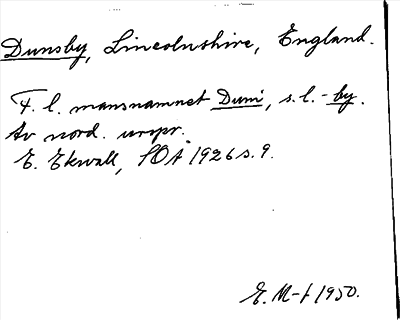 Dunsby, Lincolnshire, England.
F. l. mansnamnet Duni, s.l. -by.
Av nord. urspr.
E. Ekwall, SOÅ 1926 s. 9.
E. M-t 1950.